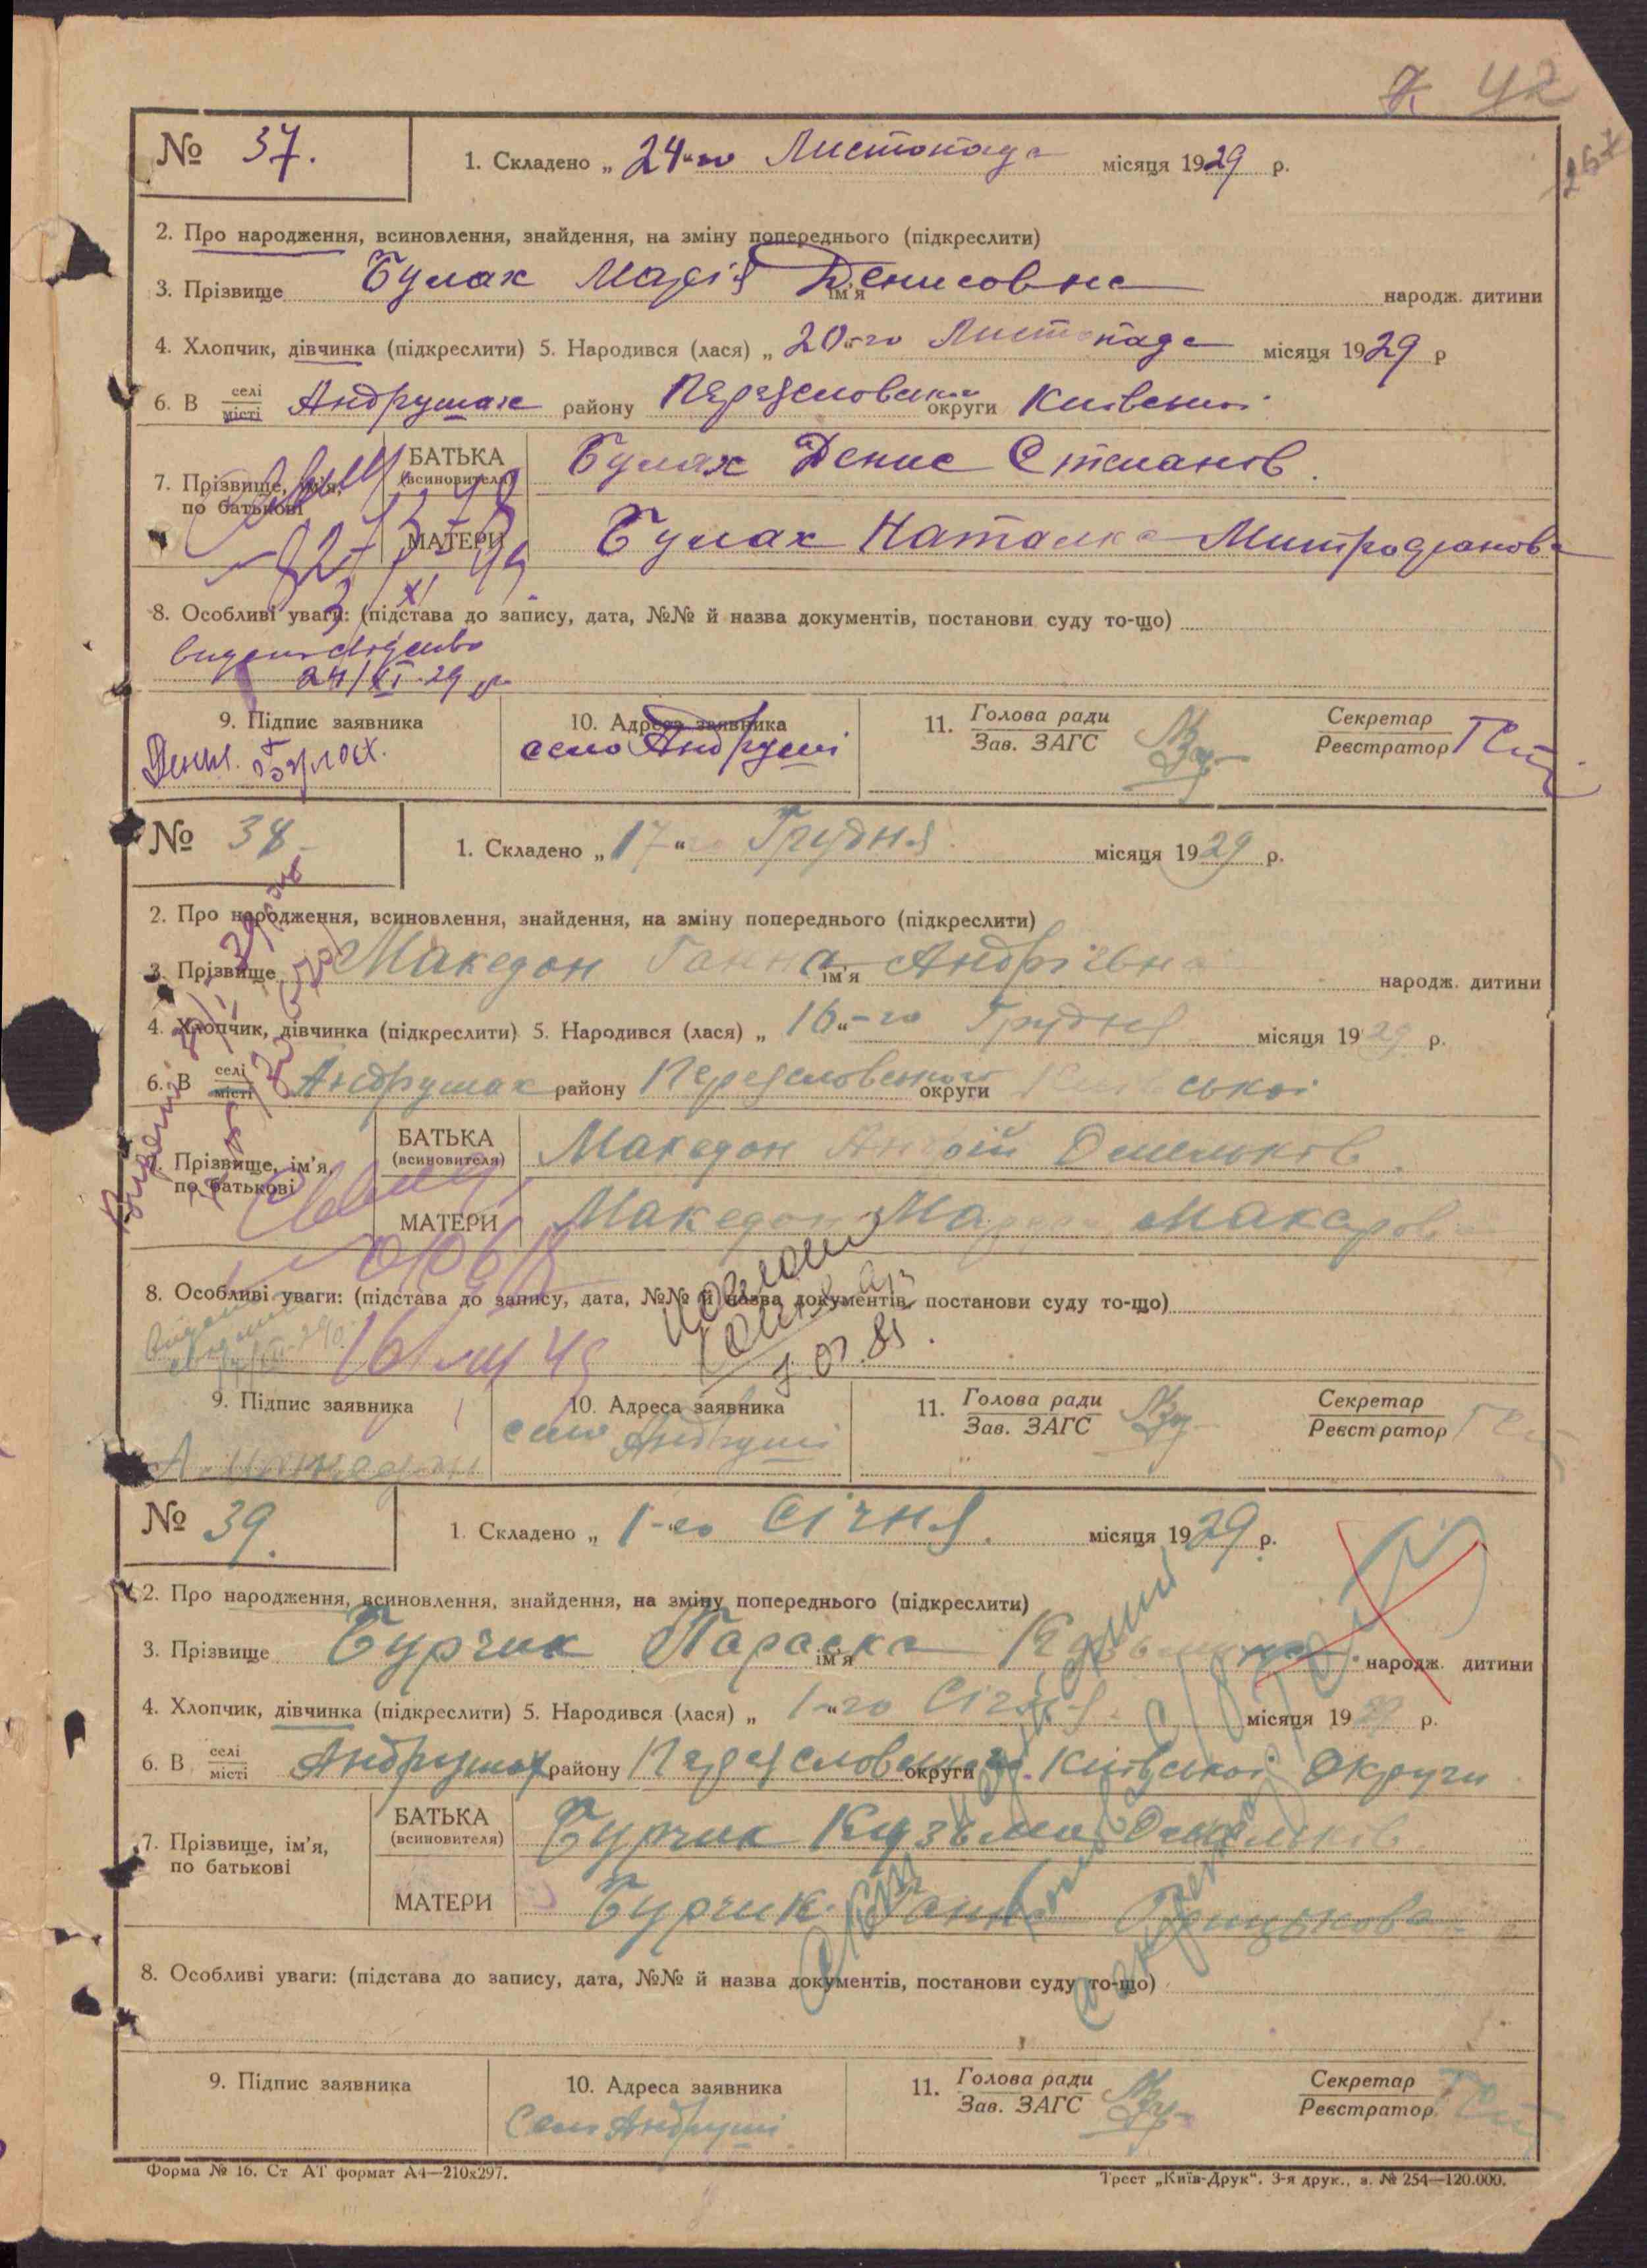 42
№ 37.
1. Складено „ 24 "го Листопада місяця 1929 р.
2. Про народження, всиновлення, знайдення, на зміну попереднього (підкреслити)
3. Прізвище Булах Марія ім'я Денисовна народж. дитини
4. Хлопчик, дівчинка (підкреслити) 5. Народився (лася) „ 20"го Листопада місяця 1929 р
6. В селі місті Андрушах району Переяслов округи Київської
7. Прізвище, ім'я, по батькові
БАТЬКА (всиновителя) Булах Денис Степанов.
МАТЕРИ Булах Наталка Митрофанов
8. Особливі уваги: (підстава до запису, дата, №№ й назва документів, постанови суду то-що)
24/XI 29 р
9. Підпис заявника
10. Адреса заявника
11. Голова ради Зав. ЗАГС
Секретар Реєстратор
Денис. Булах.
село Андруші
№ 38
1. Складено „ 17 "го Грудня місяця 1929 р.
2. Про народження, всиновлення, знайдення, на зміну попереднього (підкреслити)
3. Прізвище Македон Ганна ім'я Андріївна народж. дитини
4. Хлопчик, дівчинка (підкреслити) 5. Народився (лася) „ 16"-го Грудня місяця 1929 р.
6. В селі місті Андрушах району Переясловського округи Київської
7. Прізвище, ім'я, по батькові
БАТЬКА (всиновителя) Македон Андрій Омельков.
МАТЕРИ Македон Макаров
8. Особливі уваги: (підстава до запису, дата, №№ й назва документів, постанови суду то-що)
9. Підпис заявника
10. Адреса заявника
11. Голова ради Зав. ЗАГС
Секретар Реєстратор
село Андруші
№ 39.
1. Складено „ 1"-го Січня. місяця 1929 р.
2. Про народження, всиновлення, знайдення, на зміну попереднього (підкреслити)
3. Прізвище Бурчик Параска ім'я народж. дитини
4. Хлопчик, дівчинка (підкреслити) 5. Народився (лася) „ 1"-го Січня. місяця 19 р.
6. В селі місті Андрушах району Переясловського округи Київської Округи
7. Прізвище, ім'я, по батькові
БАТЬКА (всиновителя) Бурчик Кузьма Омельків
МАТЕРИ Бурчик Ганна Грицькова
8. Особливі уваги: (підстава до запису, дата, №№ й назва документів, постанови суду то-що)
9. Підпис заявника
10. Адреса заявника
11. Голова ради Зав. ЗАГС
Секретар Реєстратор
Село Андруші
Форма № 16. Ст АТ формат А4—210х297.
Трест „Київ-Друк“. 3-я друк., з. № 254—120.000.